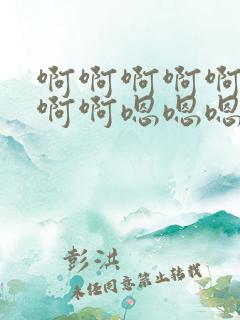 啊啊啊啊啊
啊啊嗯嗯嗯
彭洪
未经同意禁止转载